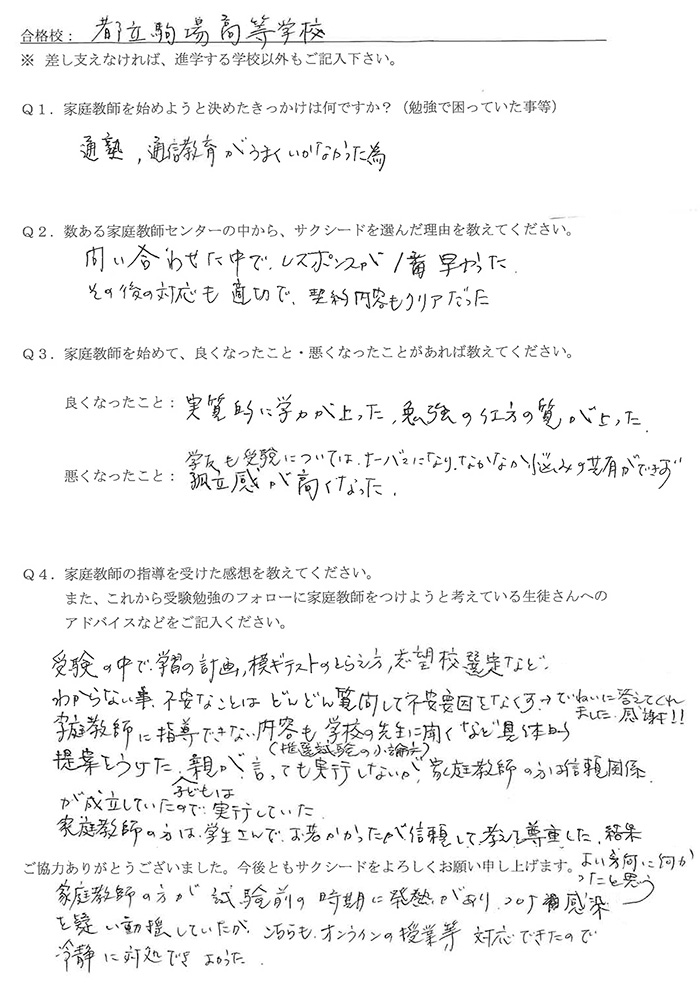 合格校： 都立駒場高等学校
※ 差し支えなければ、進学する学校以外もご記入下さい。
Q１．家庭教師を始めようと決めたきっかけは何ですか？（勉強で困っていた事等）
通塾，通信教育がうまくいかなかった為
Q２．数ある家庭教師センターの中から、サクシードを選んだ理由を教えてください。
問い合わせた中で，レスポンスが１番早かった．
その後の対応も適切で、契約内容もクリアだった
Q３．家庭教師を始めて、良くなったこと・悪くなったことがあれば教えてください。
良くなったこと： 実質的に学力が上った，勉強の仕方の質が上った．
学友も受験については、ナーバスになり、なかなか、悩みの共有ができず
悪くなったこと： 孤立感が高くなった．
Q４．家庭教師の指導を受けた感想を教えてください。
また、これから受験勉強のフォローに家庭教師をつけようと考えている生徒さんへの
アドバイスなどをご記入ください。
受験の中で、学習の計画，模ギテストのとらえ方，志望校選定など、
わからない事 不安なことは どんどん質問して不安要因をなくす→ていねいに答えてくれ
ました．感謝!!
家庭教師に指導できない内容も 学校の先生に聞くなど具体的
(推薦試験の小論文)
提案をうけた．親が、言っても実行しないが、家庭教師の方は信頼関係
子どもは
が成立していたので、実行していた．
家庭教師の方は、学生さんで、お若かかったが信頼して、教えを尊重した，結果
ご協力ありがとうございました。今後ともサクシードをよろしくお願い申し上げます。
よい方向に向か
ったと思う
家庭教師の方が 試験前の時期に発熱があり、コロナ感染
を疑い動揺していたが、こちらも、オンラインの授業等 対応できたので
冷静に対処でき よかった．